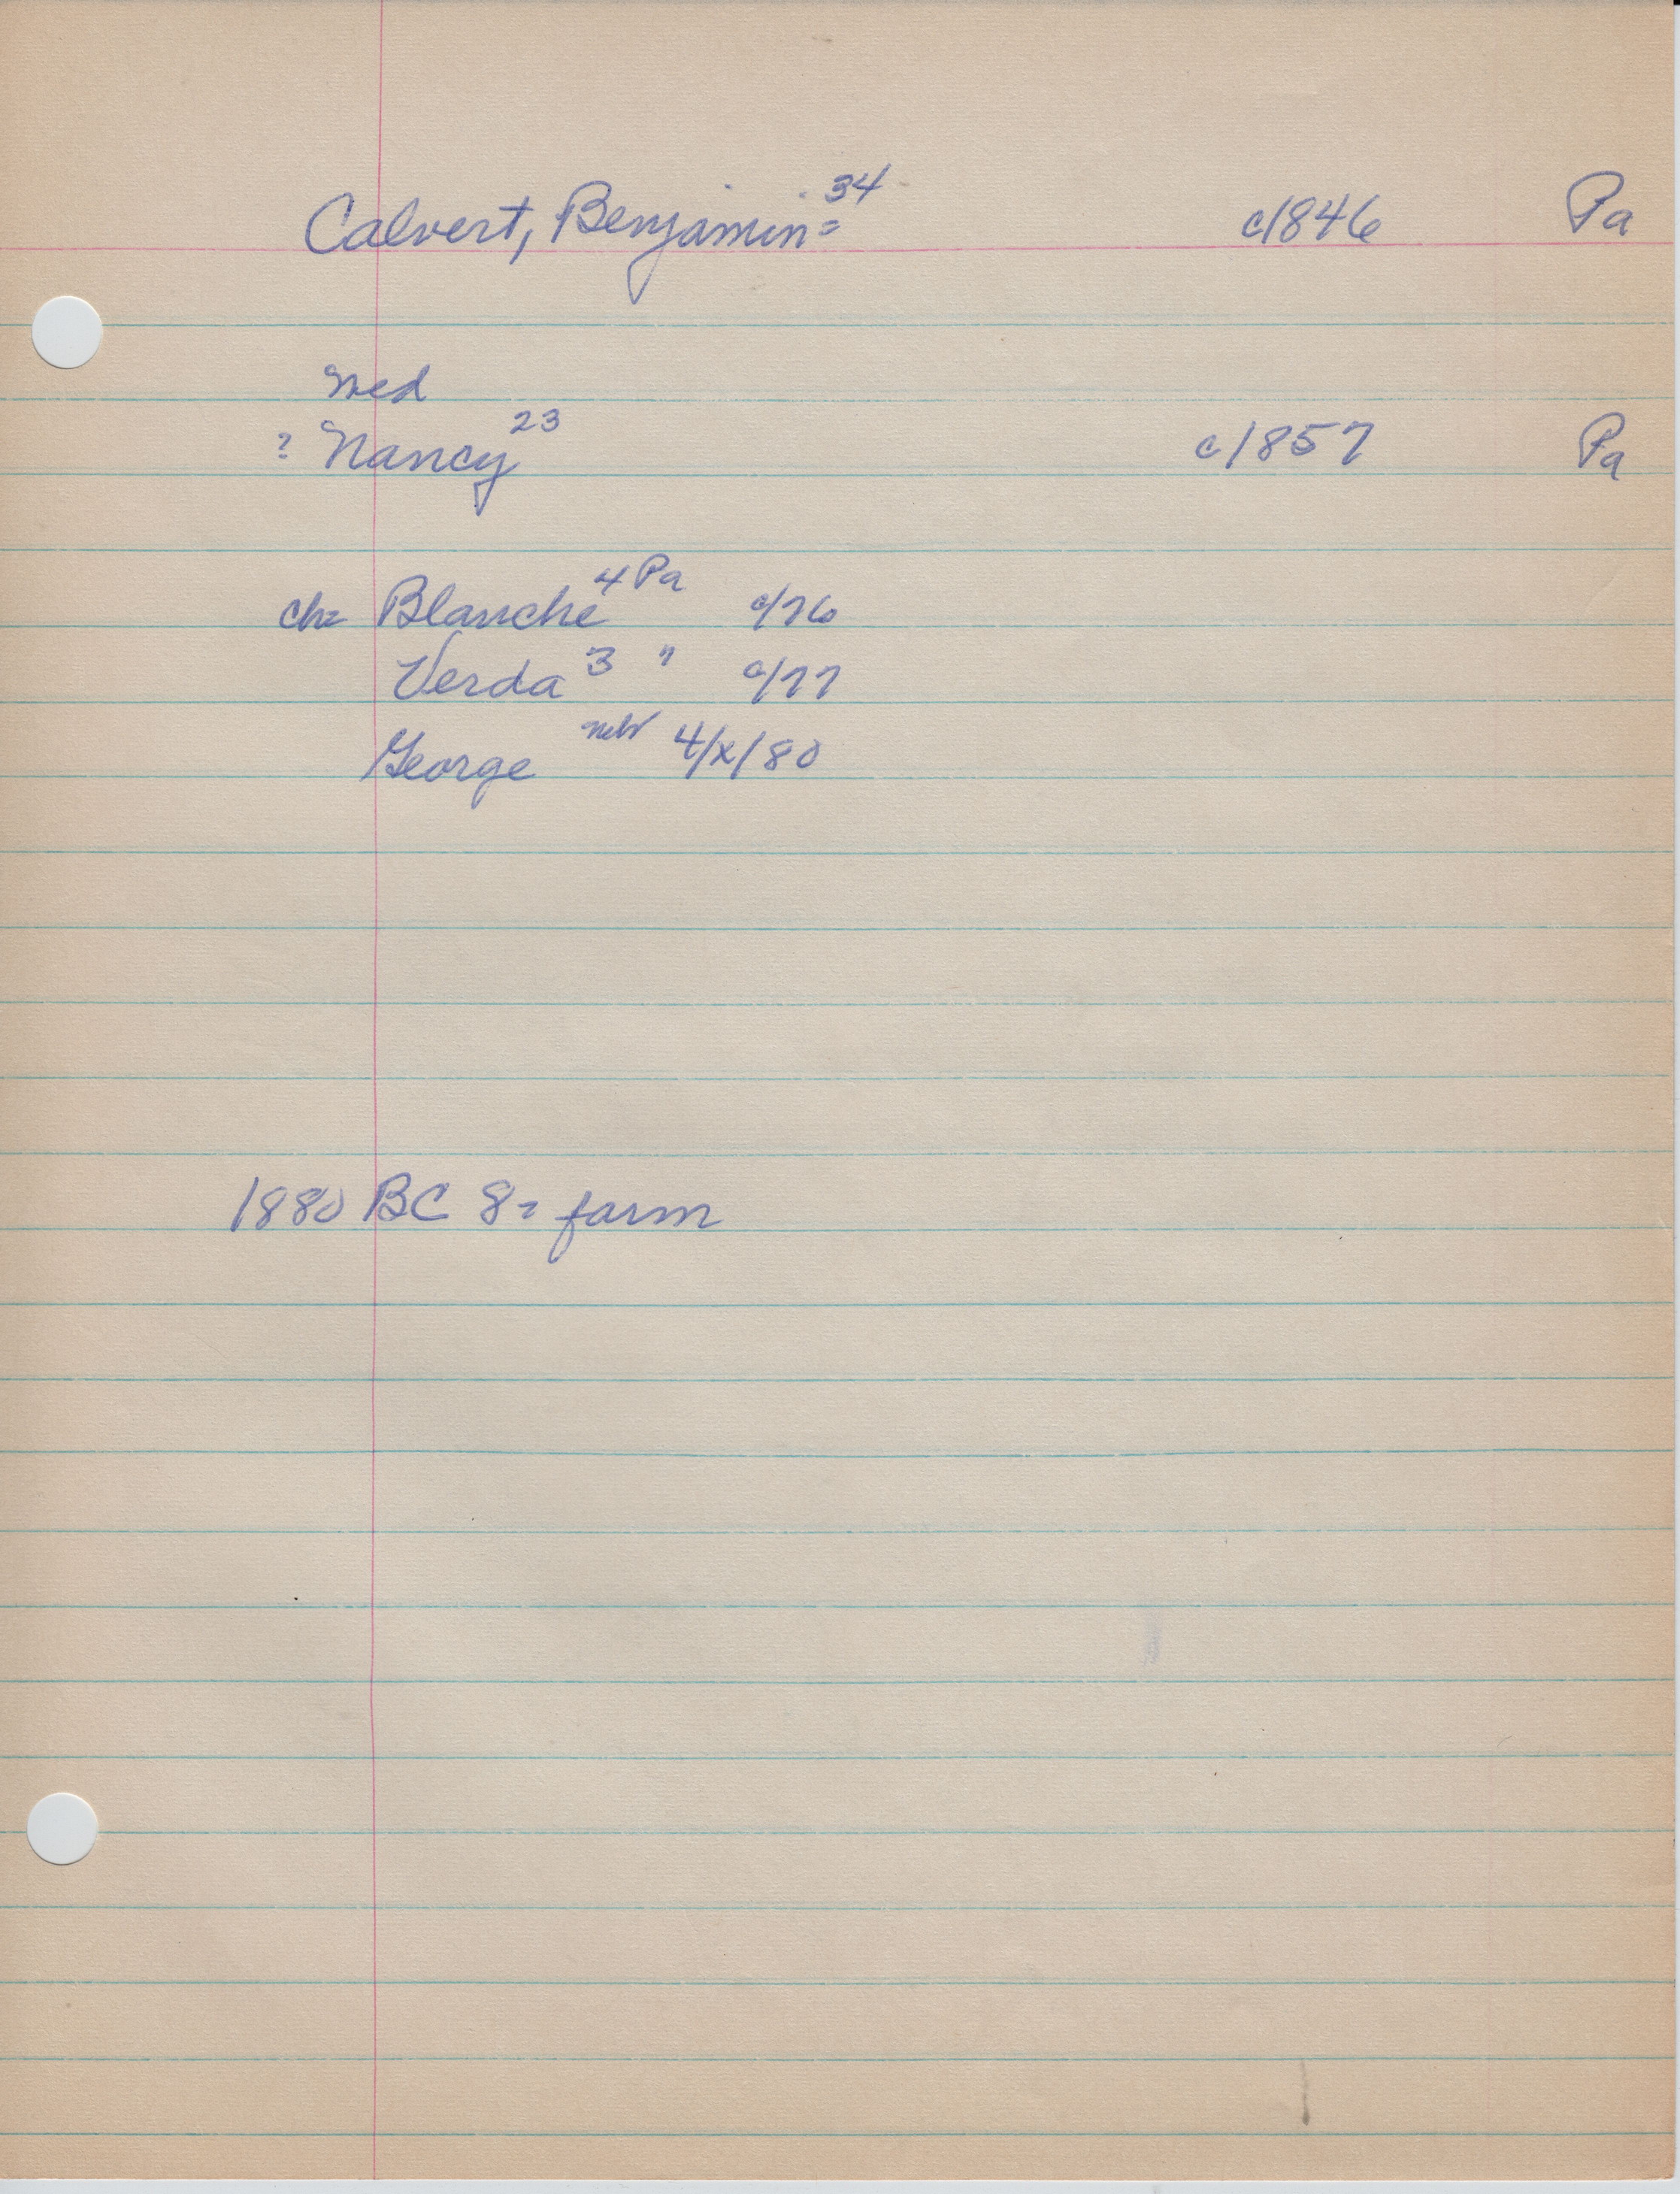 Calvert, Benjamin = 34 c1846 Pa
med
? Nancy 23 c1857 Pa
ch= Blanche 4 Pa c/76
Verda 3 " c/77
George 4/x/80
1880 BC 8= farm